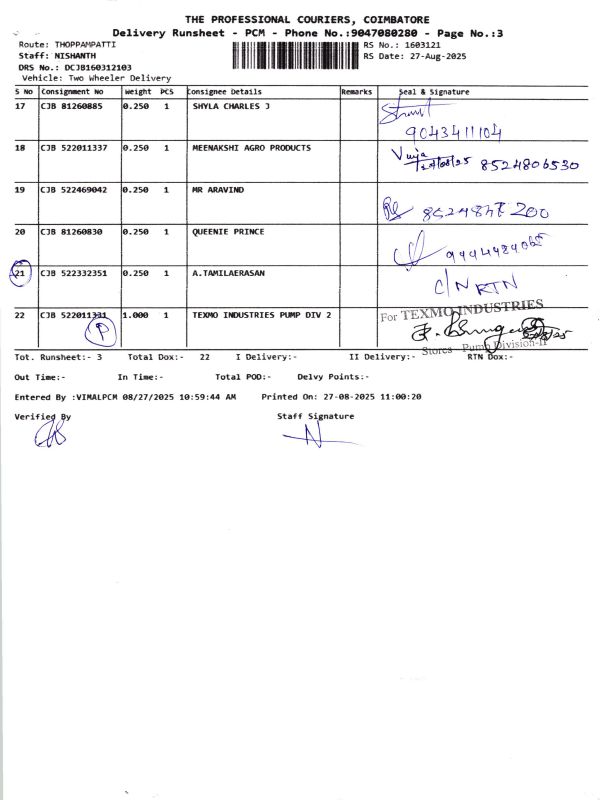 THE PROFESSIONAL COURIERS, COIMBATORE
Delivery Runsheet - PCM - Phone No.:9047080280 - Page No.:3
Route: THOPPAMPATTI RS No.: 1603121
Staff: NISHANTH RS Date: 27-Aug-2025
DRS No.: DCJB160312103
Vehicle: Two Wheeler Delivery
S No Consignment No Weight PCS Consignee Details Remarks Seal & Signature
17 CJB 81260885 0.250 1 SHYLA CHARLES J
9043411104
18 CJB 522011337 0.250 1 MEENAKSHI AGRO PRODUCTS
8524806530
19 CJB 522469042 0.250 1 MR ARAVIND
20 CJB 81260830 0.250 1 QUEENIE PRINCE
21 CJB 522332351 0.250 1 A.TAMILAERASAN C/N RTN
22 CJB 522011331 1.000 1 TEXMO INDUSTRIES PUMP DIV 2 For TEXMO INDUSTRIES
P
Stores - Pump Division-II
Tot. Runsheet:- 3 Total Dox:- 22 I Delivery:- II Delivery:- RTN Dox:-
Out Time:- In Time:- Total POD:- Delvy Points:-
Entered By :VIMALPCM 08/27/2025 10:59:44 AM Printed On: 27-08-2025 11:00:20
Verified By Staff Signature